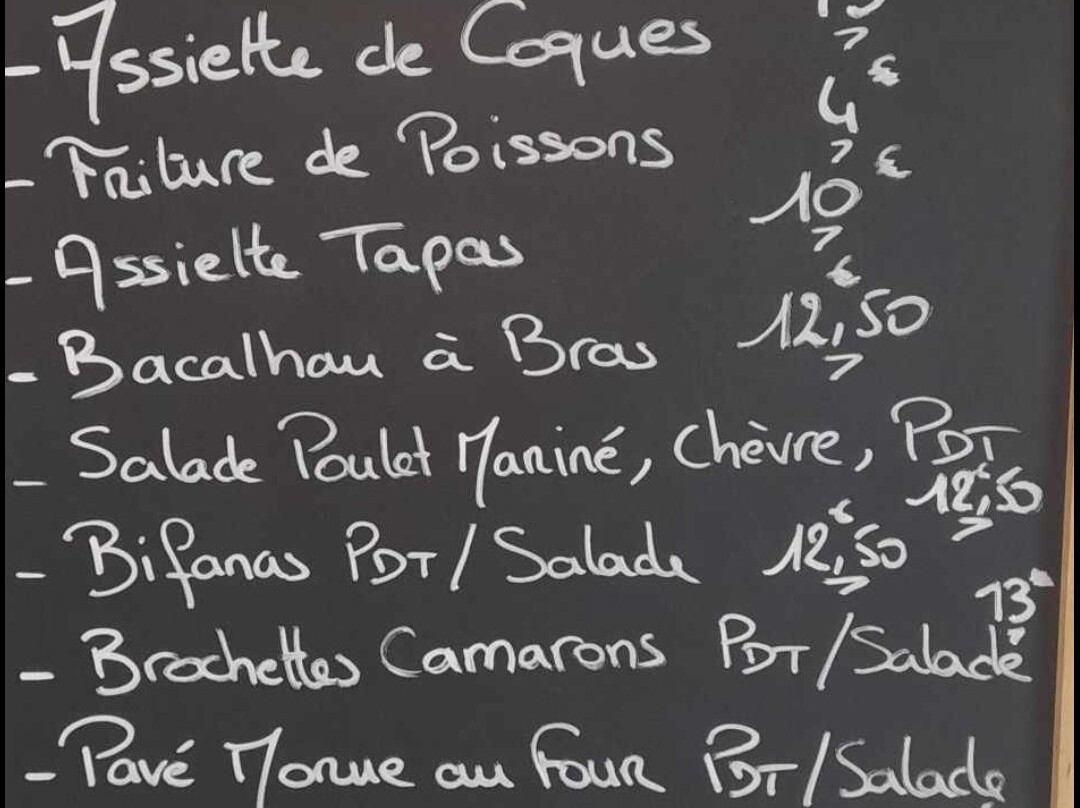 - Assiette de Coques
- Friture de Poissons 4€
- Assiette Tapas 10€
- Bacalhau à Bras 12,€50
- Salade Poulet Mariné, Chèvre, PDT
12,€50
- Bifanas PDT/Salade 12,€50
- Brochettes Camarons PDT/Salade 13€
- Pavé Morue au Four PDT/Salade